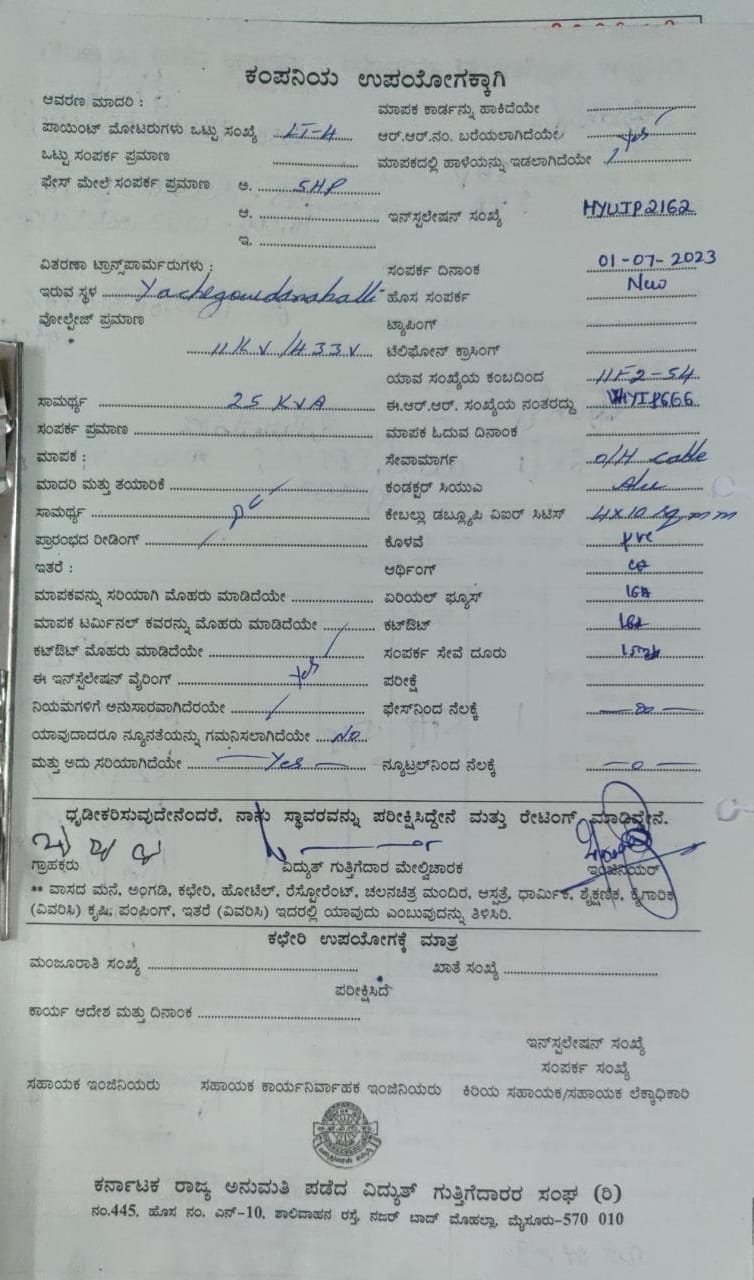 ಕಂಪನಿಯ ಉಪಯೋಗಕ್ಕಾಗಿ
ಆವರಣ ಮಾದರಿ : ಮಾಪಕ ಕಾರ್ಡನ್ನು ಹಾಕಿದೆಯೇ
ಪಾಯಿಂಟ್ ಮೋಟರುಗಳು ಒಟ್ಟು ಸಂಖ್ಯೆ LT-4 ಆರ್.ಆರ್.ನಂ. ಬರೆಯಲಾಗಿದೆಯೇ Yes
ಒಟ್ಟು ಸಂಪರ್ಕ ಪ್ರಮಾಣ ಮಾಪಕದಲ್ಲಿ ಹಾಳೆಯನ್ನು ಇಡಲಾಗಿದೆಯೇ
ಫೇಸ್ ಮೇಲೆ ಸಂಪರ್ಕ ಪ್ರಮಾಣ ಅ. 5HP
ಆ. ಇನ್‌ಸ್ಟಲೇಷನ್ ಸಂಖ್ಯೆ HYUIP2162
ಇ.
ವಿತರಣಾ ಟ್ರಾನ್ಸ್‌ಪಾರ್ಮರುಗಳು : ಸಂಪರ್ಕ ದಿನಾಂಕ 01-07-2023
ಇರುವ ಸ್ಥಳ Yachegowdanahalli ಹೊಸ ಸಂಪರ್ಕ New
ವೋಲ್ಟೇಜ್ ಪ್ರಮಾಣ ಟ್ಯಾಪಿಂಗ್
11KV/433V ಟೆಲಿಫೋನ್ ಕ್ರಾಸಿಂಗ್
ಯಾವ ಸಂಖ್ಯೆಯ ಕಂಬದಿಂದ 11F2-54
ಸಾಮರ್ಥ್ಯ 25 KVA ಈ.ಆರ್.ಆರ್. ಸಂಖ್ಯೆಯ ನಂತರದ್ದು
ಸಂಪರ್ಕ ಪ್ರಮಾಣ ಮಾಪಕ ಓದುವ ದಿನಾಂಕ
ಮಾಪಕ : ಸೇವಾಮಾರ್ಗ O/H cable
ಮಾದರಿ ಮತ್ತು ತಯಾರಿಕೆ ಕಂಡಕ್ಟರ್ ಸಿಯುಎ Alu
ಸಾಮರ್ಥ್ಯ ಕೇಬಲ್ಲು ಡಬ್ಲ್ಯೂಪಿ ವಿಐರ್ ಸಿಟಿಸ್ 4x10 sq mm
ಪ್ರಾರಂಭದ ರೀಡಿಂಗ್ ಕೊಳವೆ pvc
ಇತರೆ : ಆರ್ಥಿಂಗ್
ಮಾಪಕವನ್ನು ಸರಿಯಾಗಿ ಮೊಹರು ಮಾಡಿದೆಯೇ ಏರಿಯಲ್ ಫ್ಯೂಸ್ 16A
ಮಾಪಕ ಟರ್ಮಿನಲ್ ಕವರನ್ನು ಮೊಹರು ಮಾಡಿದೆಯೇ ಕಟ್‌ಔಟ್ 16A
ಕಟ್‌ಔಟ್ ಮೊಹರು ಮಾಡಿದೆಯೇ ಸಂಪರ್ಕ ಸೇವೆ ದೂರು
ಈ ಇನ್‌ಸ್ಟೆಲೇಷನ್ ವೈರಿಂಗ್ Yes ಪರೀಕ್ಷೆ
ನಿಯಮಗಳಿಗೆ ಅನುಸಾರವಾಗಿದೆರಯೇ ಫೇಸ್‌ನಿಂದ ನೆಲಕ್ಕೆ
ಯಾವುದಾದರೂ ನ್ಯೂನತೆಯನ್ನು ಗಮನಿಸಲಾಗಿದೆಯೇ No
ಮತ್ತು ಅದು ಸರಿಯಾಗಿದೆಯೇ Yes ನ್ಯೂಟ್ರಲ್‌ನಿಂದ ನೆಲಕ್ಕೆ —0—
ಧೃಡೀಕರಿಸುವುದೇನೆಂದರೆ, ನಾನು ಸ್ಥಾವರವನ್ನು ಪರೀಕ್ಷಿಸಿದ್ದೇನೆ ಮತ್ತು ರೇಟಿಂಗ್ ಮಾಡಿದ್ದೇನೆ.
ಗ್ರಾಹಕರು ವಿದ್ಯುತ್ ಗುತ್ತಿಗೆದಾರ ಮೇಲ್ವಿಚಾರಕ ಇಂಜಿನಿಯರ್
** ವಾಸದ ಮನೆ, ಅಂಗಡಿ, ಕಛೇರಿ, ಹೋಟೆಲ್, ರೆಸ್ಟೋರೆಂಟ್, ಚಲನಚಿತ್ರ ಮಂದಿರ, ಆಸ್ಪತ್ರೆ, ಧಾರ್ಮಿಕ, ಶೈಕ್ಷಣಿಕ, ಕೈಗಾರಿಕ
(ವಿವರಿಸಿ) ಕೃಷಿ; ಪಂಪಿಂಗ್, ಇತರೆ (ವಿವರಿಸಿ) ಇದರಲ್ಲಿ ಯಾವುದು ಎಂಬುವುದನ್ನು ತಿಳಿಸಿರಿ.
ಕಛೇರಿ ಉಪಯೋಗಕ್ಕೆ ಮಾತ್ರ
ಮಂಜೂರಾತಿ ಸಂಖ್ಯೆ ಖಾತೆ ಸಂಖ್ಯೆ
ಪರೀಕ್ಷಿಸಿದೆ
ಕಾರ್ಯ ಆದೇಶ ಮತ್ತು ದಿನಾಂಕ
ಇನ್‌ಸ್ಟಲೇಷನ್ ಸಂಖ್ಯೆ
ಸಂಪರ್ಕ ಸಂಖ್ಯೆ
ಸಹಾಯಕ ಇಂಜಿನಿಯರು ಸಹಾಯಕ ಕಾರ್ಯನಿರ್ವಾಹಕ ಇಂಜಿನಿಯರು ಕಿರಿಯ ಸಹಾಯಕ/ಸಹಾಯಕ ಲೆಕ್ಕಾಧಿಕಾರಿ
ಕರ್ನಾಟಕ ರಾಜ್ಯ ಅನುಮತಿ ಪಡೆದ ವಿದ್ಯುತ್ ಗುತ್ತಿಗೆದಾರರ ಸಂಘ (ರಿ)
ನಂ.445, ಹೊಸ ನಂ. ಎನ್-10, ಶಾಲಿವಾಹನ ರಸ್ತೆ, ನಜರ್ ಬಾದ್ ಮೊಹಲ್ಲಾ, ಮೈಸೂರು-570 010